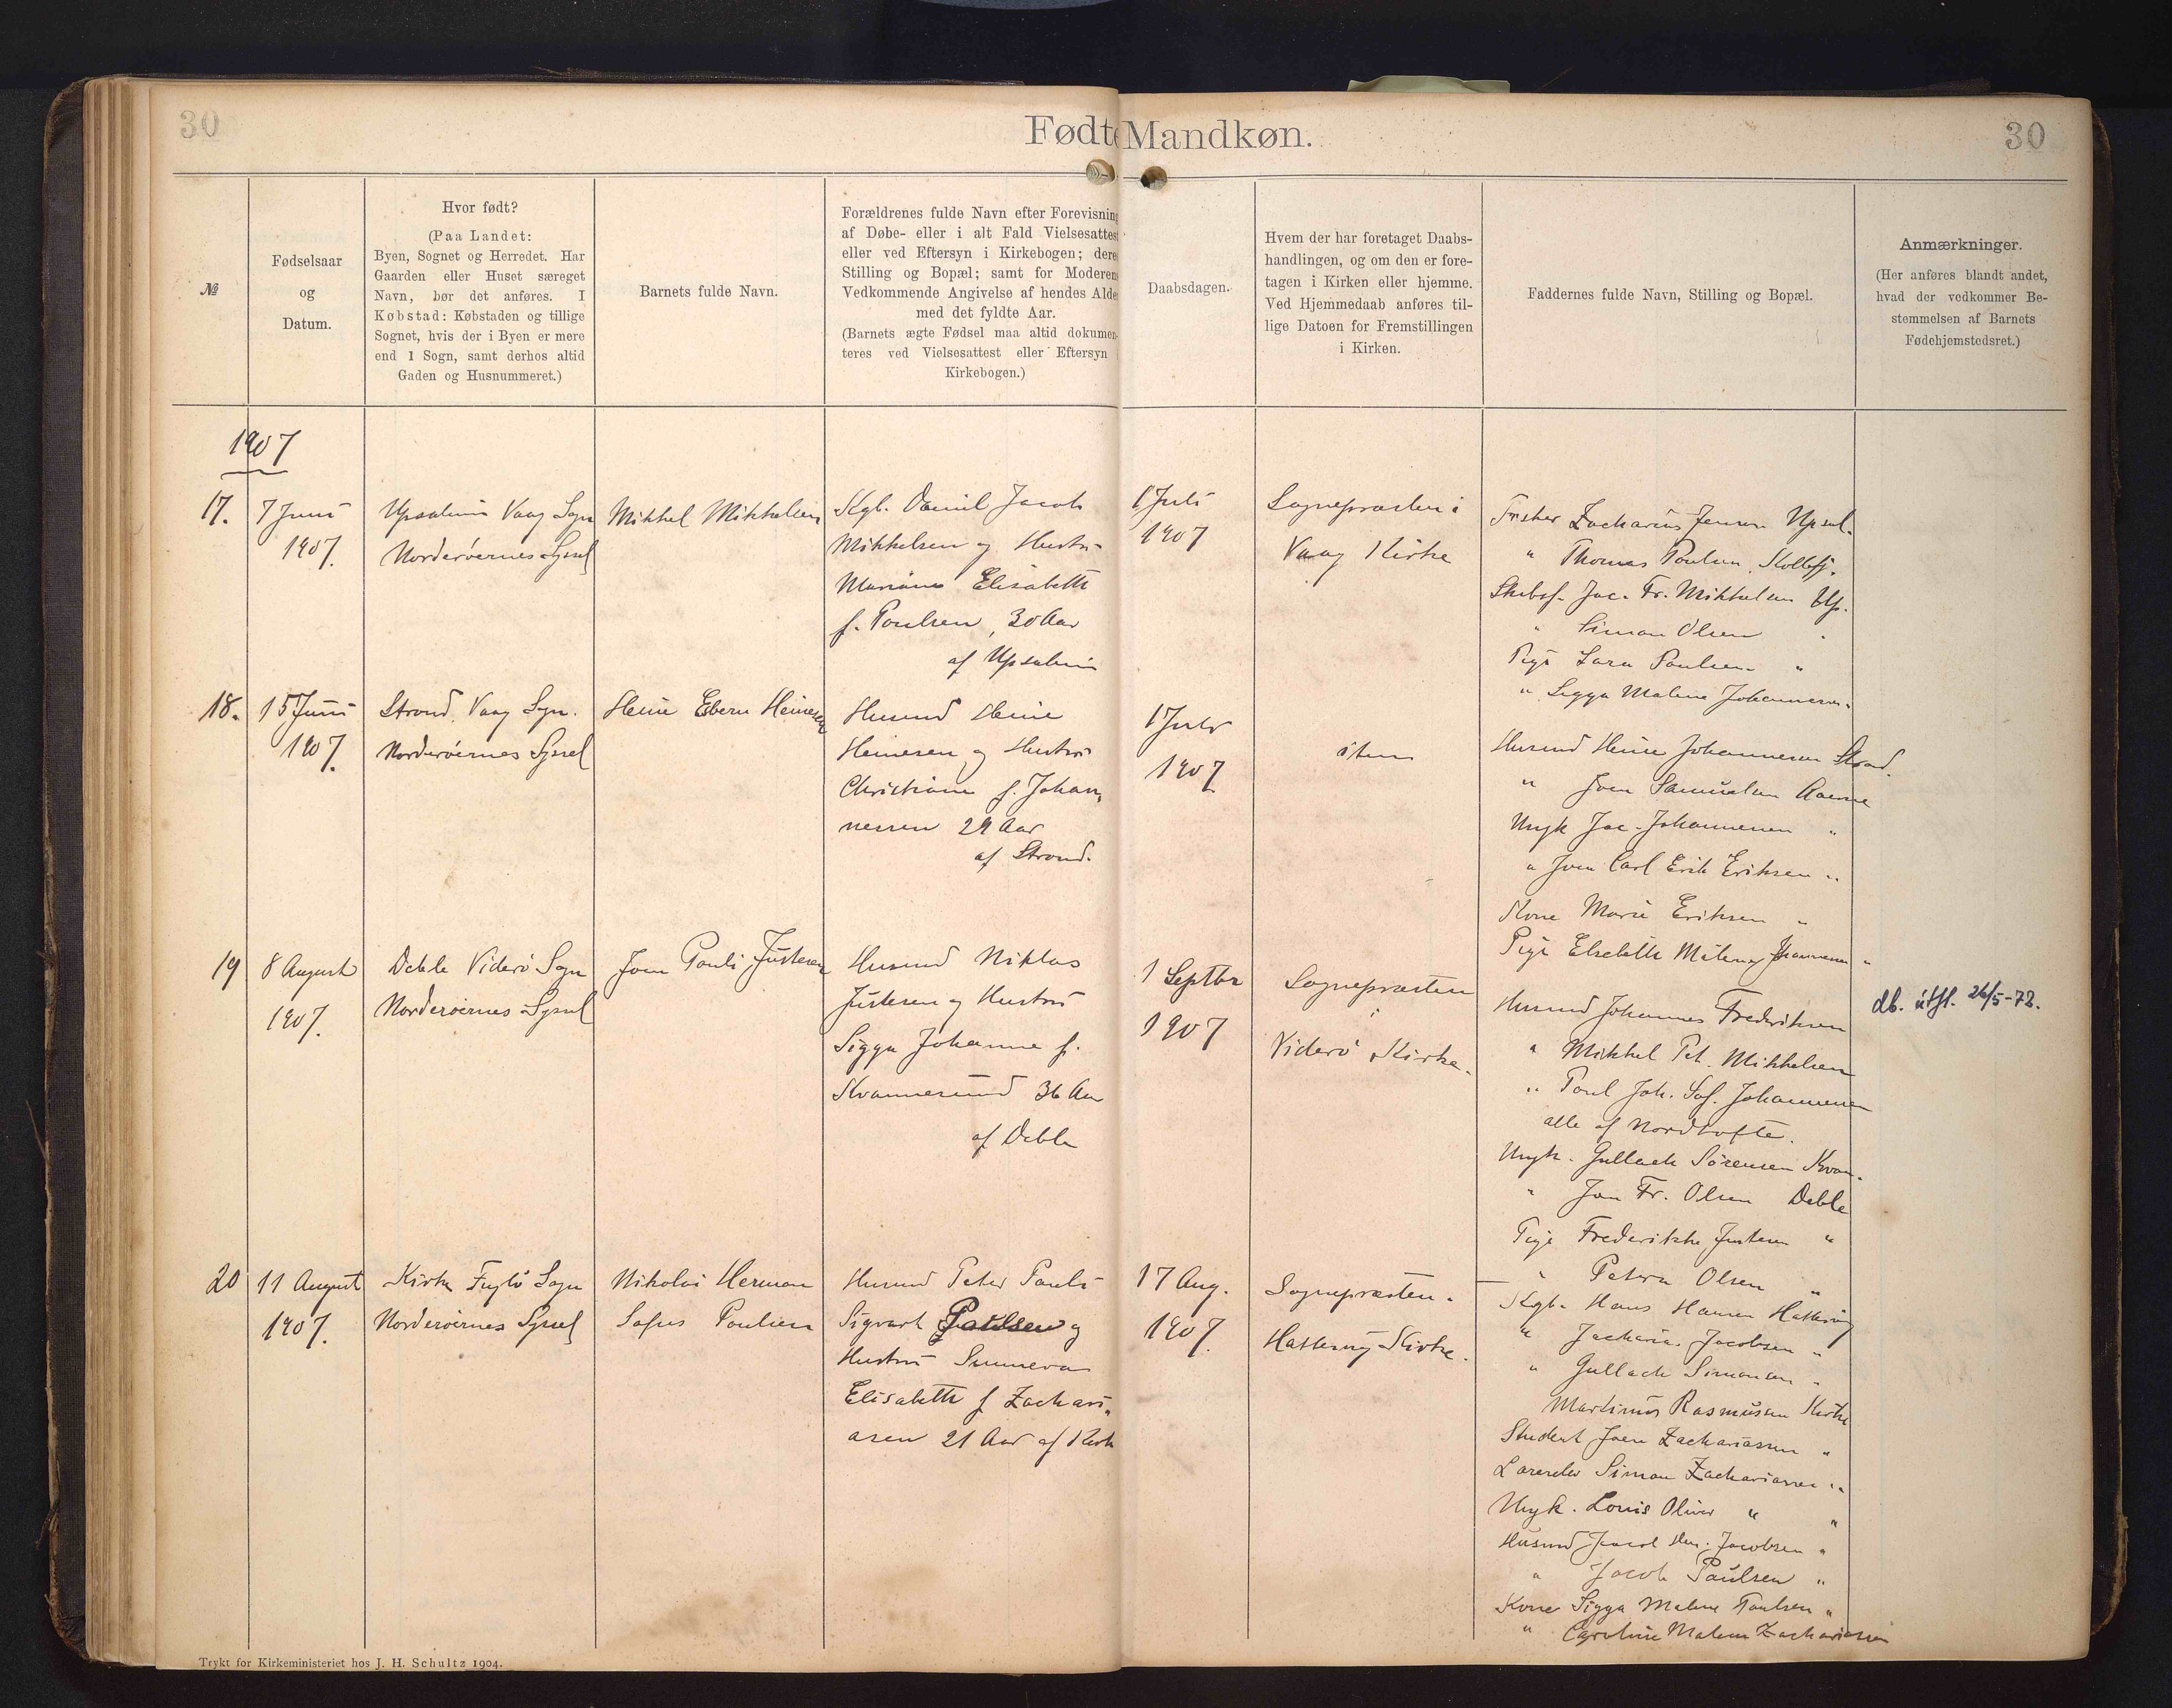 30
Fødte Mandkøn.
30
№
Fødselsaar
og
Datum.
Hvor født?
(Paa Landet:
Byen, Sognet og Herredet. Har
Gaarden eller Huset særeget
Navn, bør det anføres. I
Købstad: Købstaden og tillige
Sognet, hvis der i Byen er mere
end 1 Sogn, samt derhos altid
Gaden og Husnummeret.)
Barnets fulde Navn.
Forældrenes fulde Navn efter Forevisning
af Døbe- eller i alt Fald Vielsesattest
eller ved Eftersyn i Kirkebogen; deres
Stilling og Bopæl; samt for Moderens
Vedkommende Angivelse af hendes Alder
med det fyldte Aar.
(Barnets ægte Fødsel maa altid dokumen-
teres ved Vielsesattest eller Eftersyn
Kirkebogen.)
Daabsdagen.
Hvem der har foretaget Daabs-
handlingen, og om den er fore-
tagen i Kirken eller hjemme.
Ved Hjemmedaab anføres til-
lige Datoen for Fremstillingen
i Kirken.
Faddernes fulde Navn, Stilling og Bopæl.
Anmærkninger.
(Her anføres blandt andet,
hvad der vedkommer Be-
stemmelsen af Barnets
Fødehjemstedsret.)
1907
17.
7 Juni
1907.
Vaag Sogn
Norderøernes Syssel
Mikkel Mikkelsen
Kgb. Daniel Jacob
Mikkelsen og Hustru
Elisabeth
f. Poulsen, 30 Aar
af
1 Juli
1907
Sognepræsten i
Vaag Kirke
Zacharias Jensen
" Thomas Poulsen
Jac. Fr. Mikkelsen
" Simon Olsen "
Pige Sara Poulsen "
" Sigga Malene Johannesen
18.
15 Juni
1907.
Strond, Vaag Sogn.
Norderøernes Syssel
Heine Esbern Heinesen
Husmd Heine
Heinesen og Hustru
Christiane f. Johan-
nessen 29 Aar
af Strond.
1 Juli
1907
item
Husmd Heine Johannesen Strond.
" Joen Samuelsen
Ungk Jac. Johannesen "
" Joen Carl Erik Eriksen "
Kone Marie Eriksen "
Pige Elsebeth Malene Johannesen "
19
8 August
1907.
Deble Viderø Sogn
Norderøernes Syssel
Joen Pauli Justesen
Husmd Niklas
Justesen og Hustru
Sigga Johanne f.
Kvannesund 36 Aar
af Deble
1 Septbr
1907
Sognepræsten
i
Viderø Kirke.
Husmd Johannes Frederiksen
" Mikkel Pet. Mikkelsen
" Poul Joh. Sof. Johannesen
alle af Nordtofte.
Ungk. Gullack Sörensen Kvan.
" Jon Fr. Olsen Deble
Pige Frederikke Justesen "
" Petra Olsen "
db. útfl. 26/5-72.
20
11 August
1907.
Kirke Fuglø Sogn
Norderøernes Syssel
Nikolai Herman
Sofus Poulsen
Husmd Peter Pauli
Sigvart Poulsen og
Hustru Sunneva
Elisabeth f Zachari-
asen 21 Aar af Kirke
17 Aug.
1907.
Sognepræsten.
Hattervig Kirke.
Kgb. Hans Hansen Hattervig
" Zacharias Jacobsen "
" Gullack Simonsen "
Martinus Rasmussen Kirke
Student Joen Zachariassen "
Simon Zachariasen "
Ungk. Louis Oliver " "
Husmd Jacob Hen. Jacobsen "
" Jacob Paulsen "
Kone Sigga Malene Poulsen "
" Caroline Malene Zachariasen
Trykt for Kirkeministeriet hos J. H. Schultz 1904.